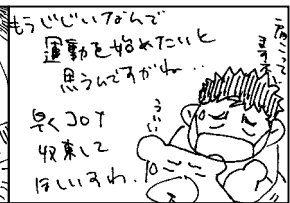 もうじじいなんで
運動を始めたいと
思うんですがね‥
早くコロナ
収束して
ほしいすわ.
肩こって
ますな
ういー